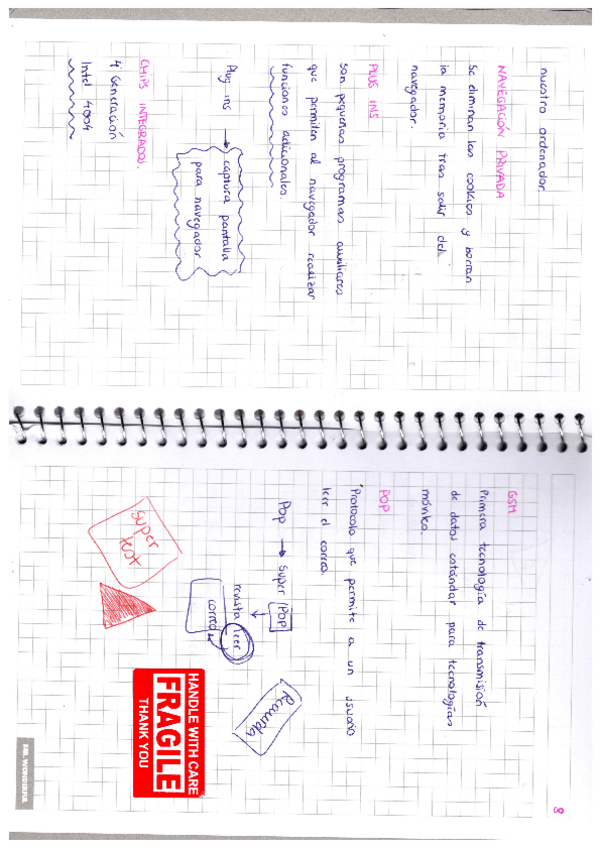 nuestro ordenador.
NAVEGACIÓN PRIVADA
Se eliminan las cookies y borran
la memoria tras salir del
navegador.
PLUG INS
son pequeños programas auxiliares
que permiten al navegador realizar
funciones adicionales.
Plug ins → captura pantalla
para navegador
CHIPS INTEGRADOS.
4ª Generación
Intel 4004
8
GSM
Primera tecnología de transmisión
de datos estándar para tecnologías
móviles.
POP
Protocolo que permite a un usuario
leer el correo.
Pop → super Pop
revista leer
correo
Recuerda
super
test
HANDLE WITH CARE
FRAGILE
THANK YOU
MR. WONDERFUL